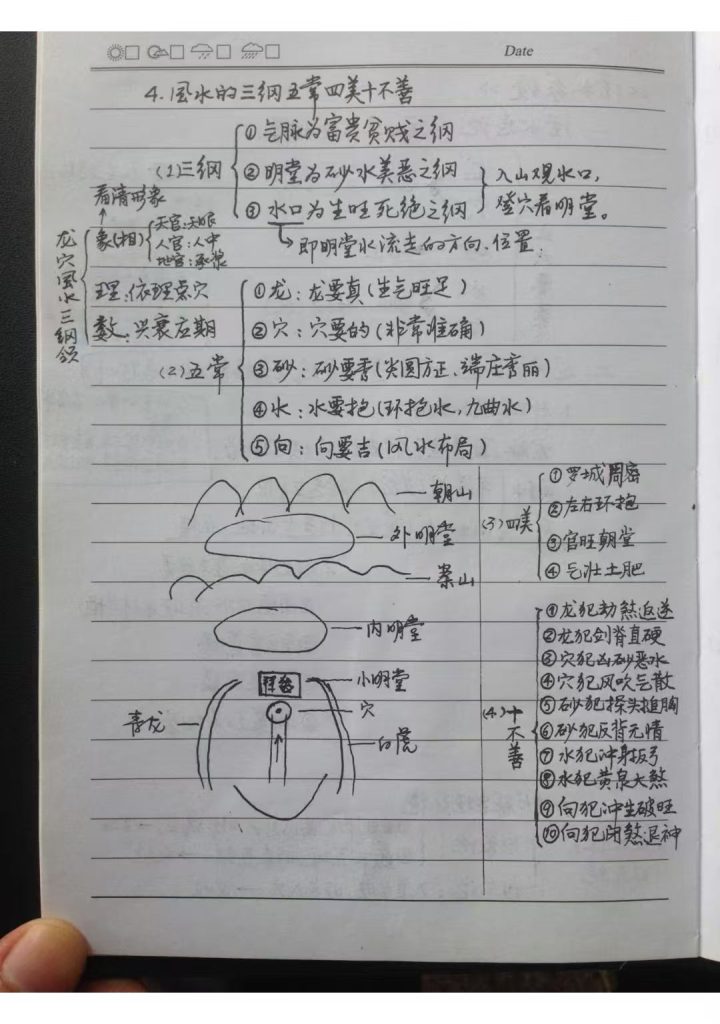 Date
4.風水的三纲五常四美十不善
(1)三纲
①气脉为富贵贫贱之纲
②明堂为砂水美恶之纲
③水口为生旺死绝之纲
即明堂水流走的方向、位置.
入山观水口,
登穴看明堂。
龙穴风水三纲领
看清形象
象(相)
天宫:天眼
人宫:人中
地宫:承浆
理:依理点穴
数:兴衰应期
(2)五常
①龙:龙要真(生气旺足)
②穴:穴要的(非常准确)
③砂:砂要秀(尖圆方正、端庄秀丽)
④水:水要抱(环抱水,九曲水)
⑤向:向要吉(风水布局)
朝山
外明堂
案山
内明堂
小明堂
穴
青龙
白虎
(3)四美
①罗城周密
②左右环抱
③官旺朝堂
④气壮土肥
(4)十不善
①龙犯劫煞返逆
②龙犯剑脊直硬
③穴犯凶砂恶水
④穴犯风吹气散
⑤砂犯探头捶胸
⑥砂犯反背无情
⑦水犯冲身扳弓
⑧水犯黄泉大煞
⑨向犯冲生破旺
⑩向犯闭煞退神